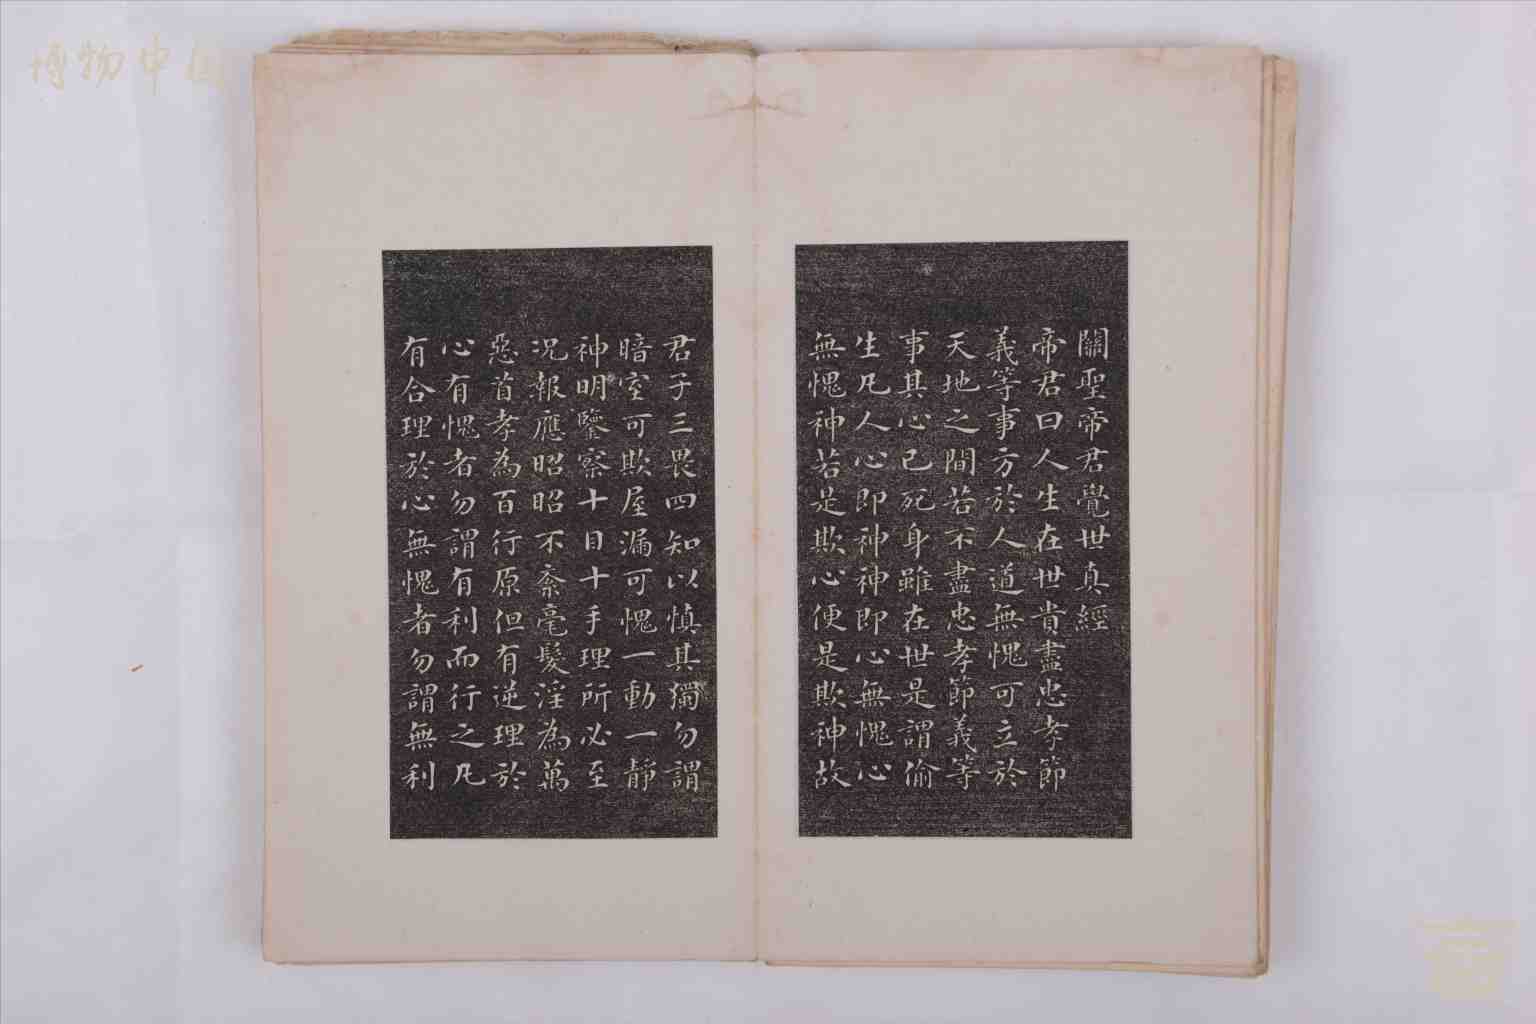 關聖帝君覺世真經
帝君曰人生在世貴盡忠孝節
義等事方於人道無愧可立於
天地之間若不盡忠孝節義等
事其心已死身雖在世是謂偷
生凡人心即神神即心無愧心
無愧神若是欺心便是欺神故
君子三畏四知以慎其獨勿謂
暗室可欺屋漏可愧一動一靜
神明鑒察十目十手理所必至
況報應昭昭不紊毫髮淫為萬
惡首孝為百行原但有逆理於
心有愧者勿謂有利而行之凡
有合理於心無愧者勿謂無利
博物中山